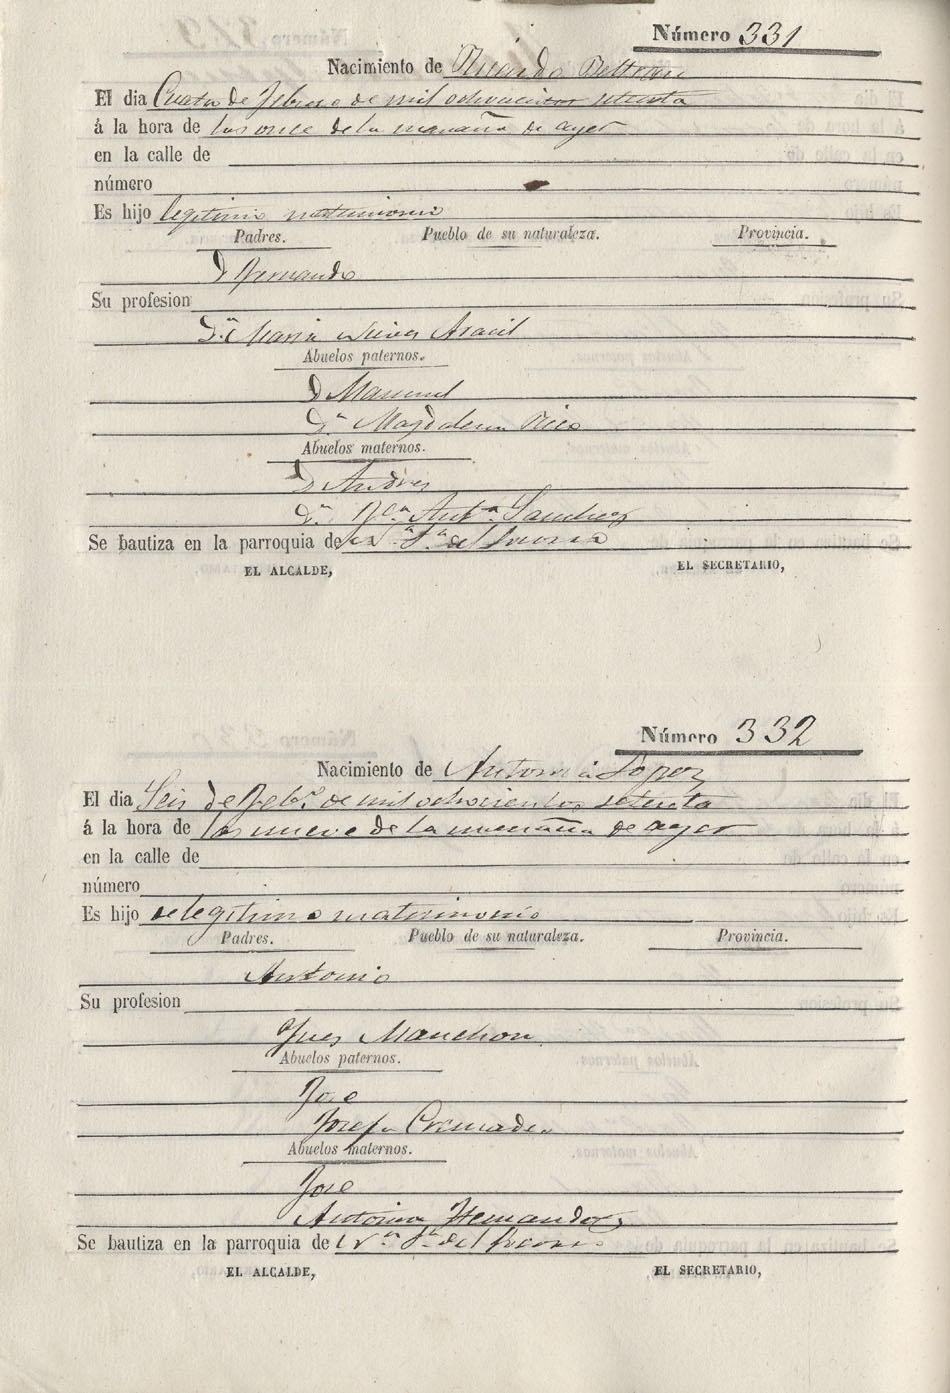 Número 331
Nacimiento de Ricardo Beltran
El dia Cuatro de Febrero de mil ochocientos setenta
á la hora de las once de la mañana de ayer
en la calle de
número
Es hijo legitimo matrimonio
Padres. Pueblo de su naturaleza. Provincia.
D Fernando
Su profesion
D.ª Maria Aracil
Abuelos paternos.
D Manuel
D.ª Magdalena Rico
Abuelos maternos.
D Andres
D.ª Fca Ant.ª Sanchez
Se bautiza en la parroquia de
EL ALCALDE, EL SECRETARIO,
Número 332
Nacimiento de Antonia Lopez
El dia Seis de Feb.º de mil ochocientos setenta
á la hora de las nueve de la mañana de ayer
en la calle de
número
Es hijo de legitimo matrimonio
Padres. Pueblo de su naturaleza. Provincia.
Antonio
Su profesion
Ynes Manchon
Abuelos paternos.
Jose
Josefa Cremades
Abuelos maternos.
Jose
Antonia Hernandez
Se bautiza en la parroquia de N.ª S.ª del Socorro
EL ALCALDE, EL SECRETARIO,